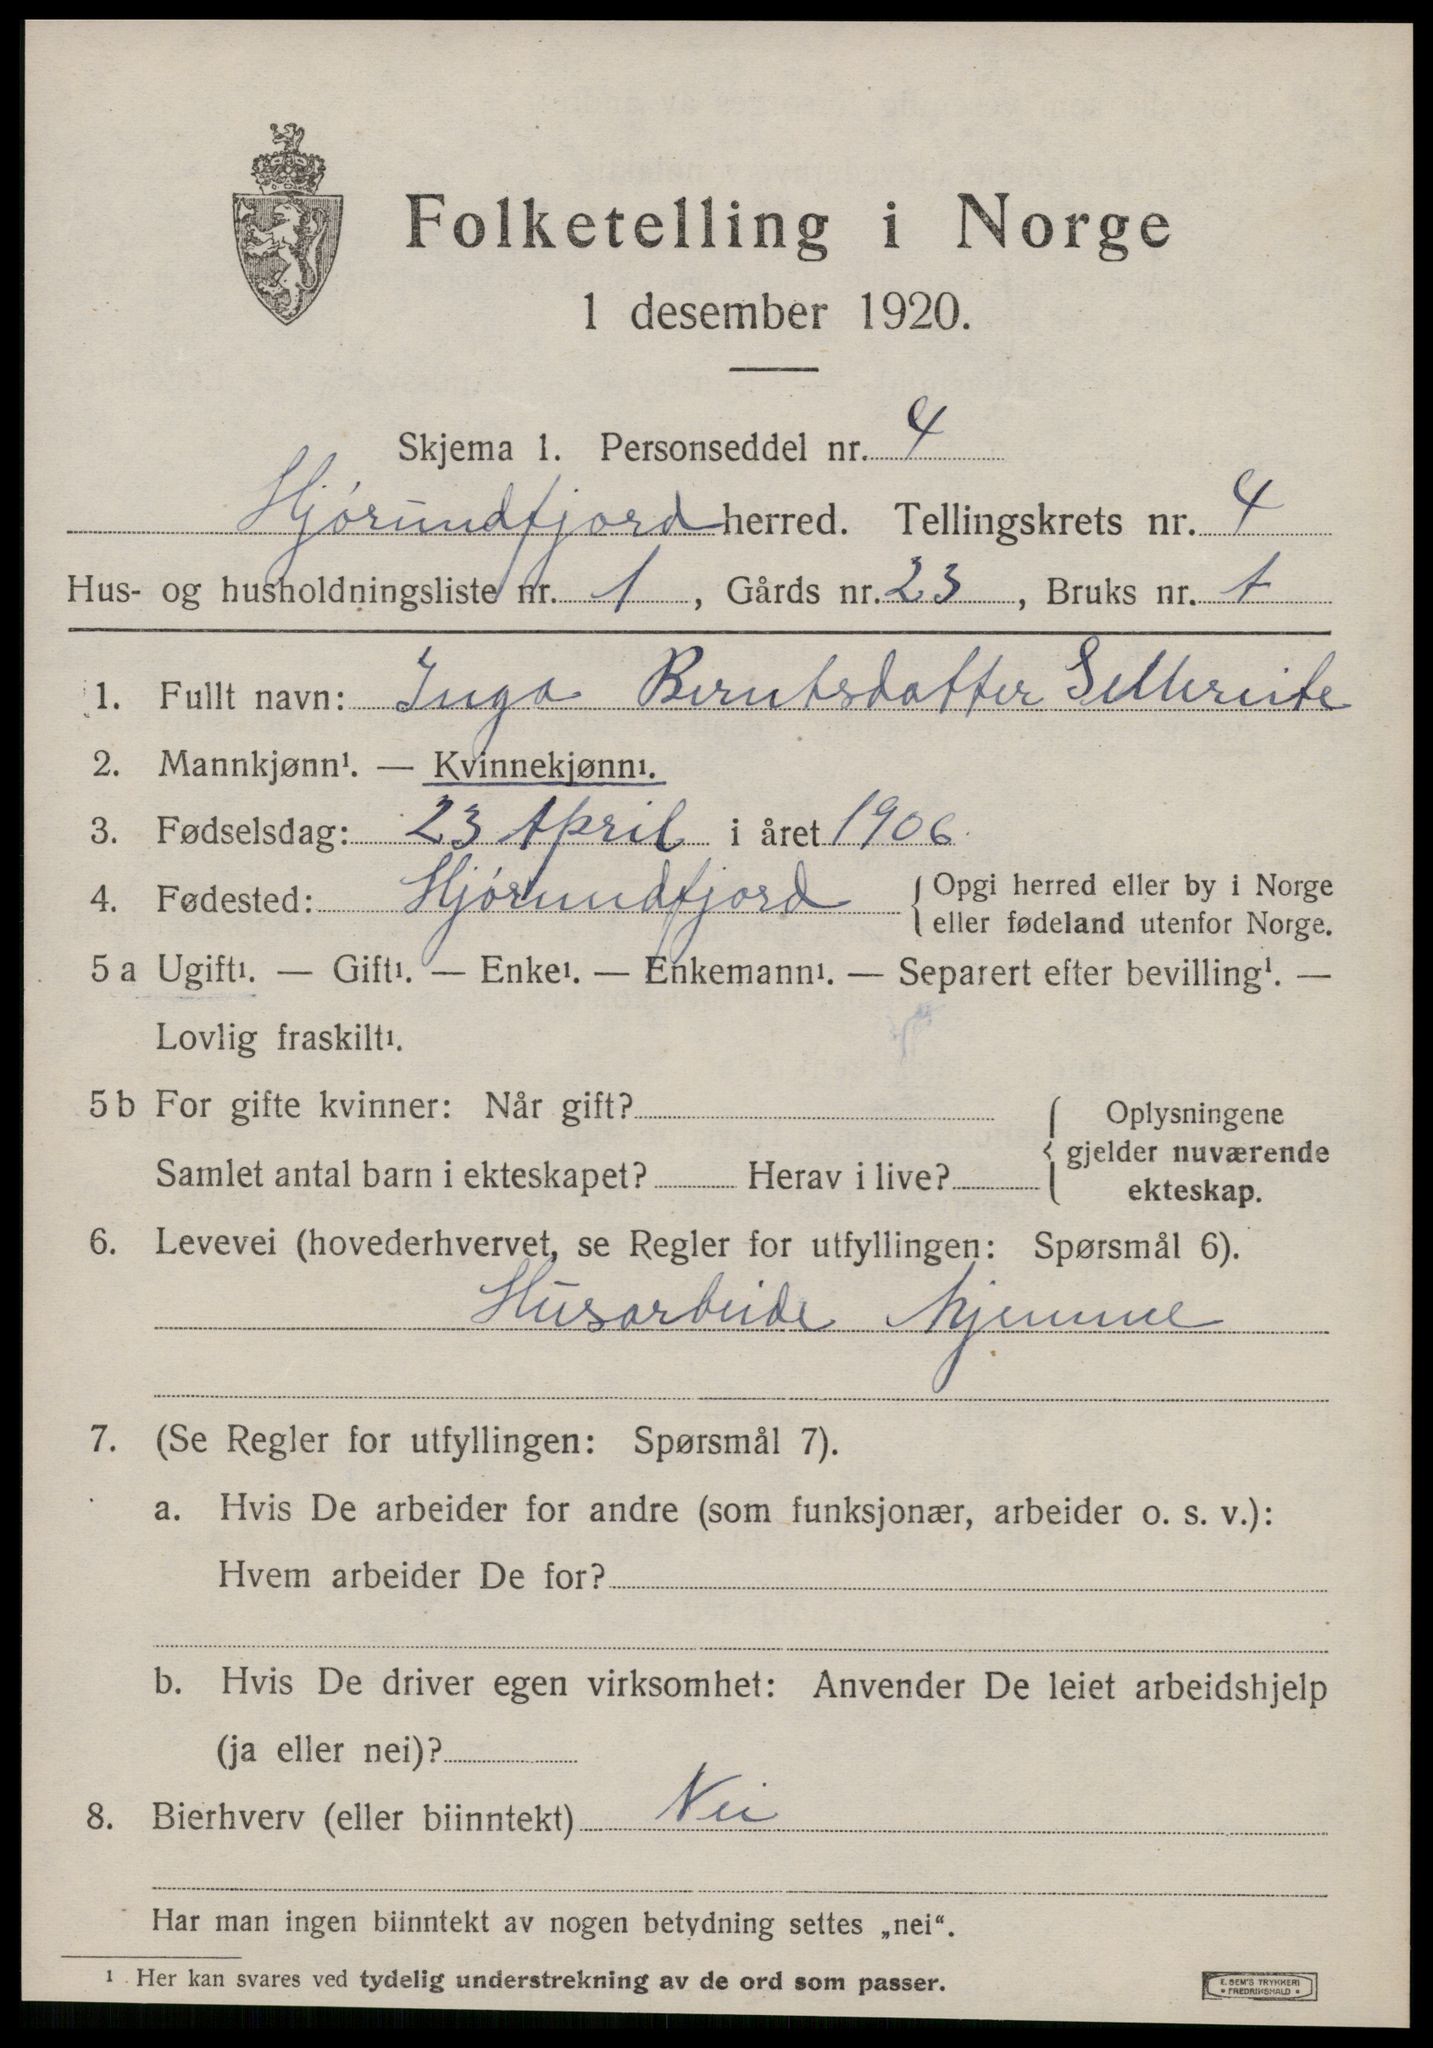 Folketelling i Norge
1 desember 1920.
Skjema 1. Personseddel nr. 4
Hjórundfjord herred. Tellingskrets nr. 4
Hus- og husholdningsliste nr. 1, Gårds nr. 23, Bruks nr. 1
1. Fullt navn: Inga Berntsdatter
2. Mannkjønn¹. — Kvinnekjønn¹.
3. Fødselsdag: 23 April i året 1906
4. Fødested: Hjórundfjord { Opgi herred eller by i Norge
eller fødeland utenfor Norge.
5 a Ugift¹. — Gift¹. — Enke¹. — Enkemann¹. — Separert efter bevilling¹. —
Lovlig fraskilt¹.
5 b For gifte kvinner: Når gift?
Samlet antal barn i ekteskapet? Herav i live?
{ Oplysningene
gjelder nuværende
ekteskap.
6. Levevei (hovederhvervet, se Regler for utfyllingen: Spørsmål 6).
Husarbeide hjemme
7. (Se Regler for utfyllingen: Spørsmål 7).
a. Hvis De arbeider for andre (som funksjonær, arbeider o. s. v.):
Hvem arbeider De for?
b. Hvis De driver egen virksomhet: Anvender De leiet arbeidshjelp
(ja eller nei)?
8. Bierhverv (eller biinntekt) Nei
Har man ingen biinntekt av nogen betydning settes „nei“.
¹ Her kan svares ved tydelig understrekning av de ord som passer.
E. SEM'S TRYKKERI
• FREDRIKSHALD •